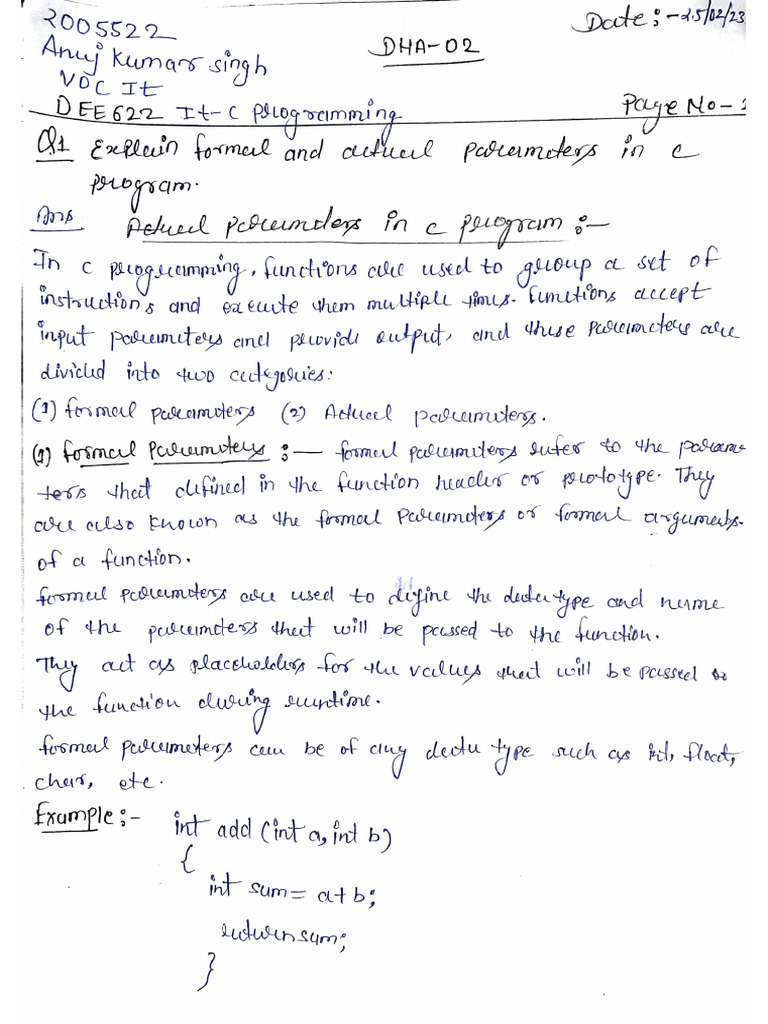 2005522
Anuj Kumar Singh
VOC It
DHA-02
Date:-25/02/23
DEE622 It-C programming
Page No-
Q1 Explain formal and actual parameters in c
program.
Ans Actual parameters in c program:-
In c programming, functions are used to group a set of
instructions and execute them multiple times. functions accept
input parameters and provide output, and these parameters are
divided into two categories:
(1) formal parameters (2) Actual parameters.
(1) formal parameters:- formal parameters refer to the parame-
ters that defined in the function header or prototype. They
are also known as the formal parameters or formal arguments.
of a function.
formal parameters are used to define the data type and name
of the parameters that will be passed to the function.
They act as placeholders for the values that will be passed to
the function during runtime.
formal parameters can be of any data type such as int, float,
char, etc.
Example:- int add (int a, int b)
{
int sum = a+b;
return sum;
}